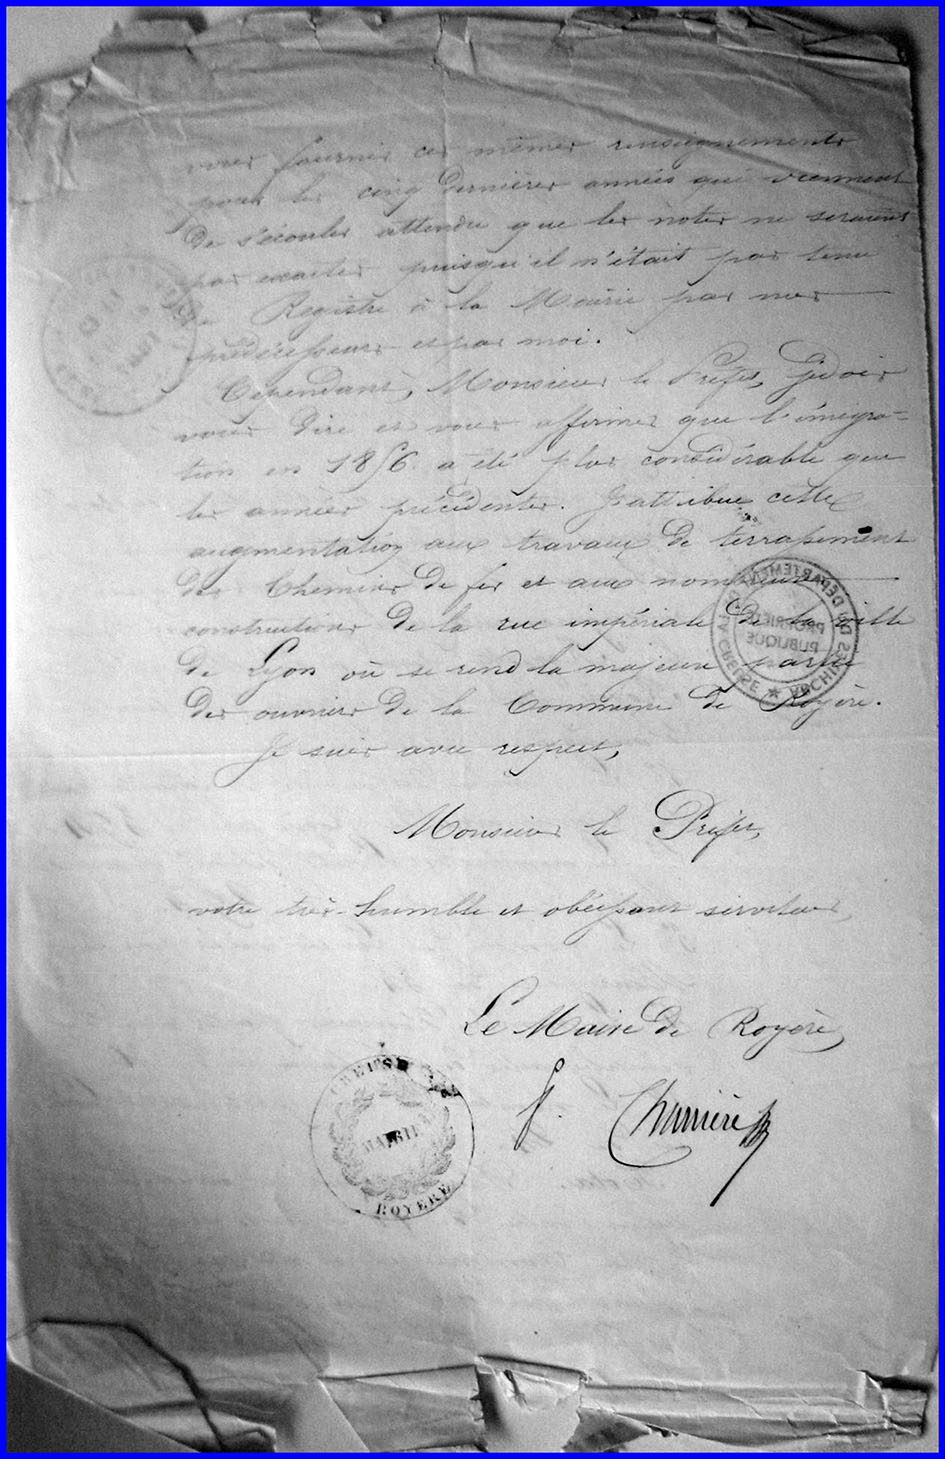 vous fournir ces mêmes renseignements
pour les cinq dernières années qui viennent
de s'écouler attendu que les notes ne seraient
pas exactes puisqu'il n'était pas tenu
de Registre à la Mairie par mes
prédécesseurs et par moi.
Cependant, Monsieur le Préfet, je dois
vous dire et vous affirmer que l'émigra-
tion en 1856 a été plus considérable que
les années précédentes. J'attribue cette
augmentation aux travaux de terrassement
des Chemins de fer et aux nombreuses
constructions de la rue impériale de la ville
de Lyon où se rend la majeure partie
des ouvriers de la Commune de Royère.
Je suis avec respect,
Monsieur le Préfet,
votre très-humble et obéissant serviteur,
Le Maire de Royère,
Charrière
MAIRIE
ROYERE
ARCHIVES DU DEPARTEMENT DE LA CREUSE
PROPRIETE
PUBLIQUE